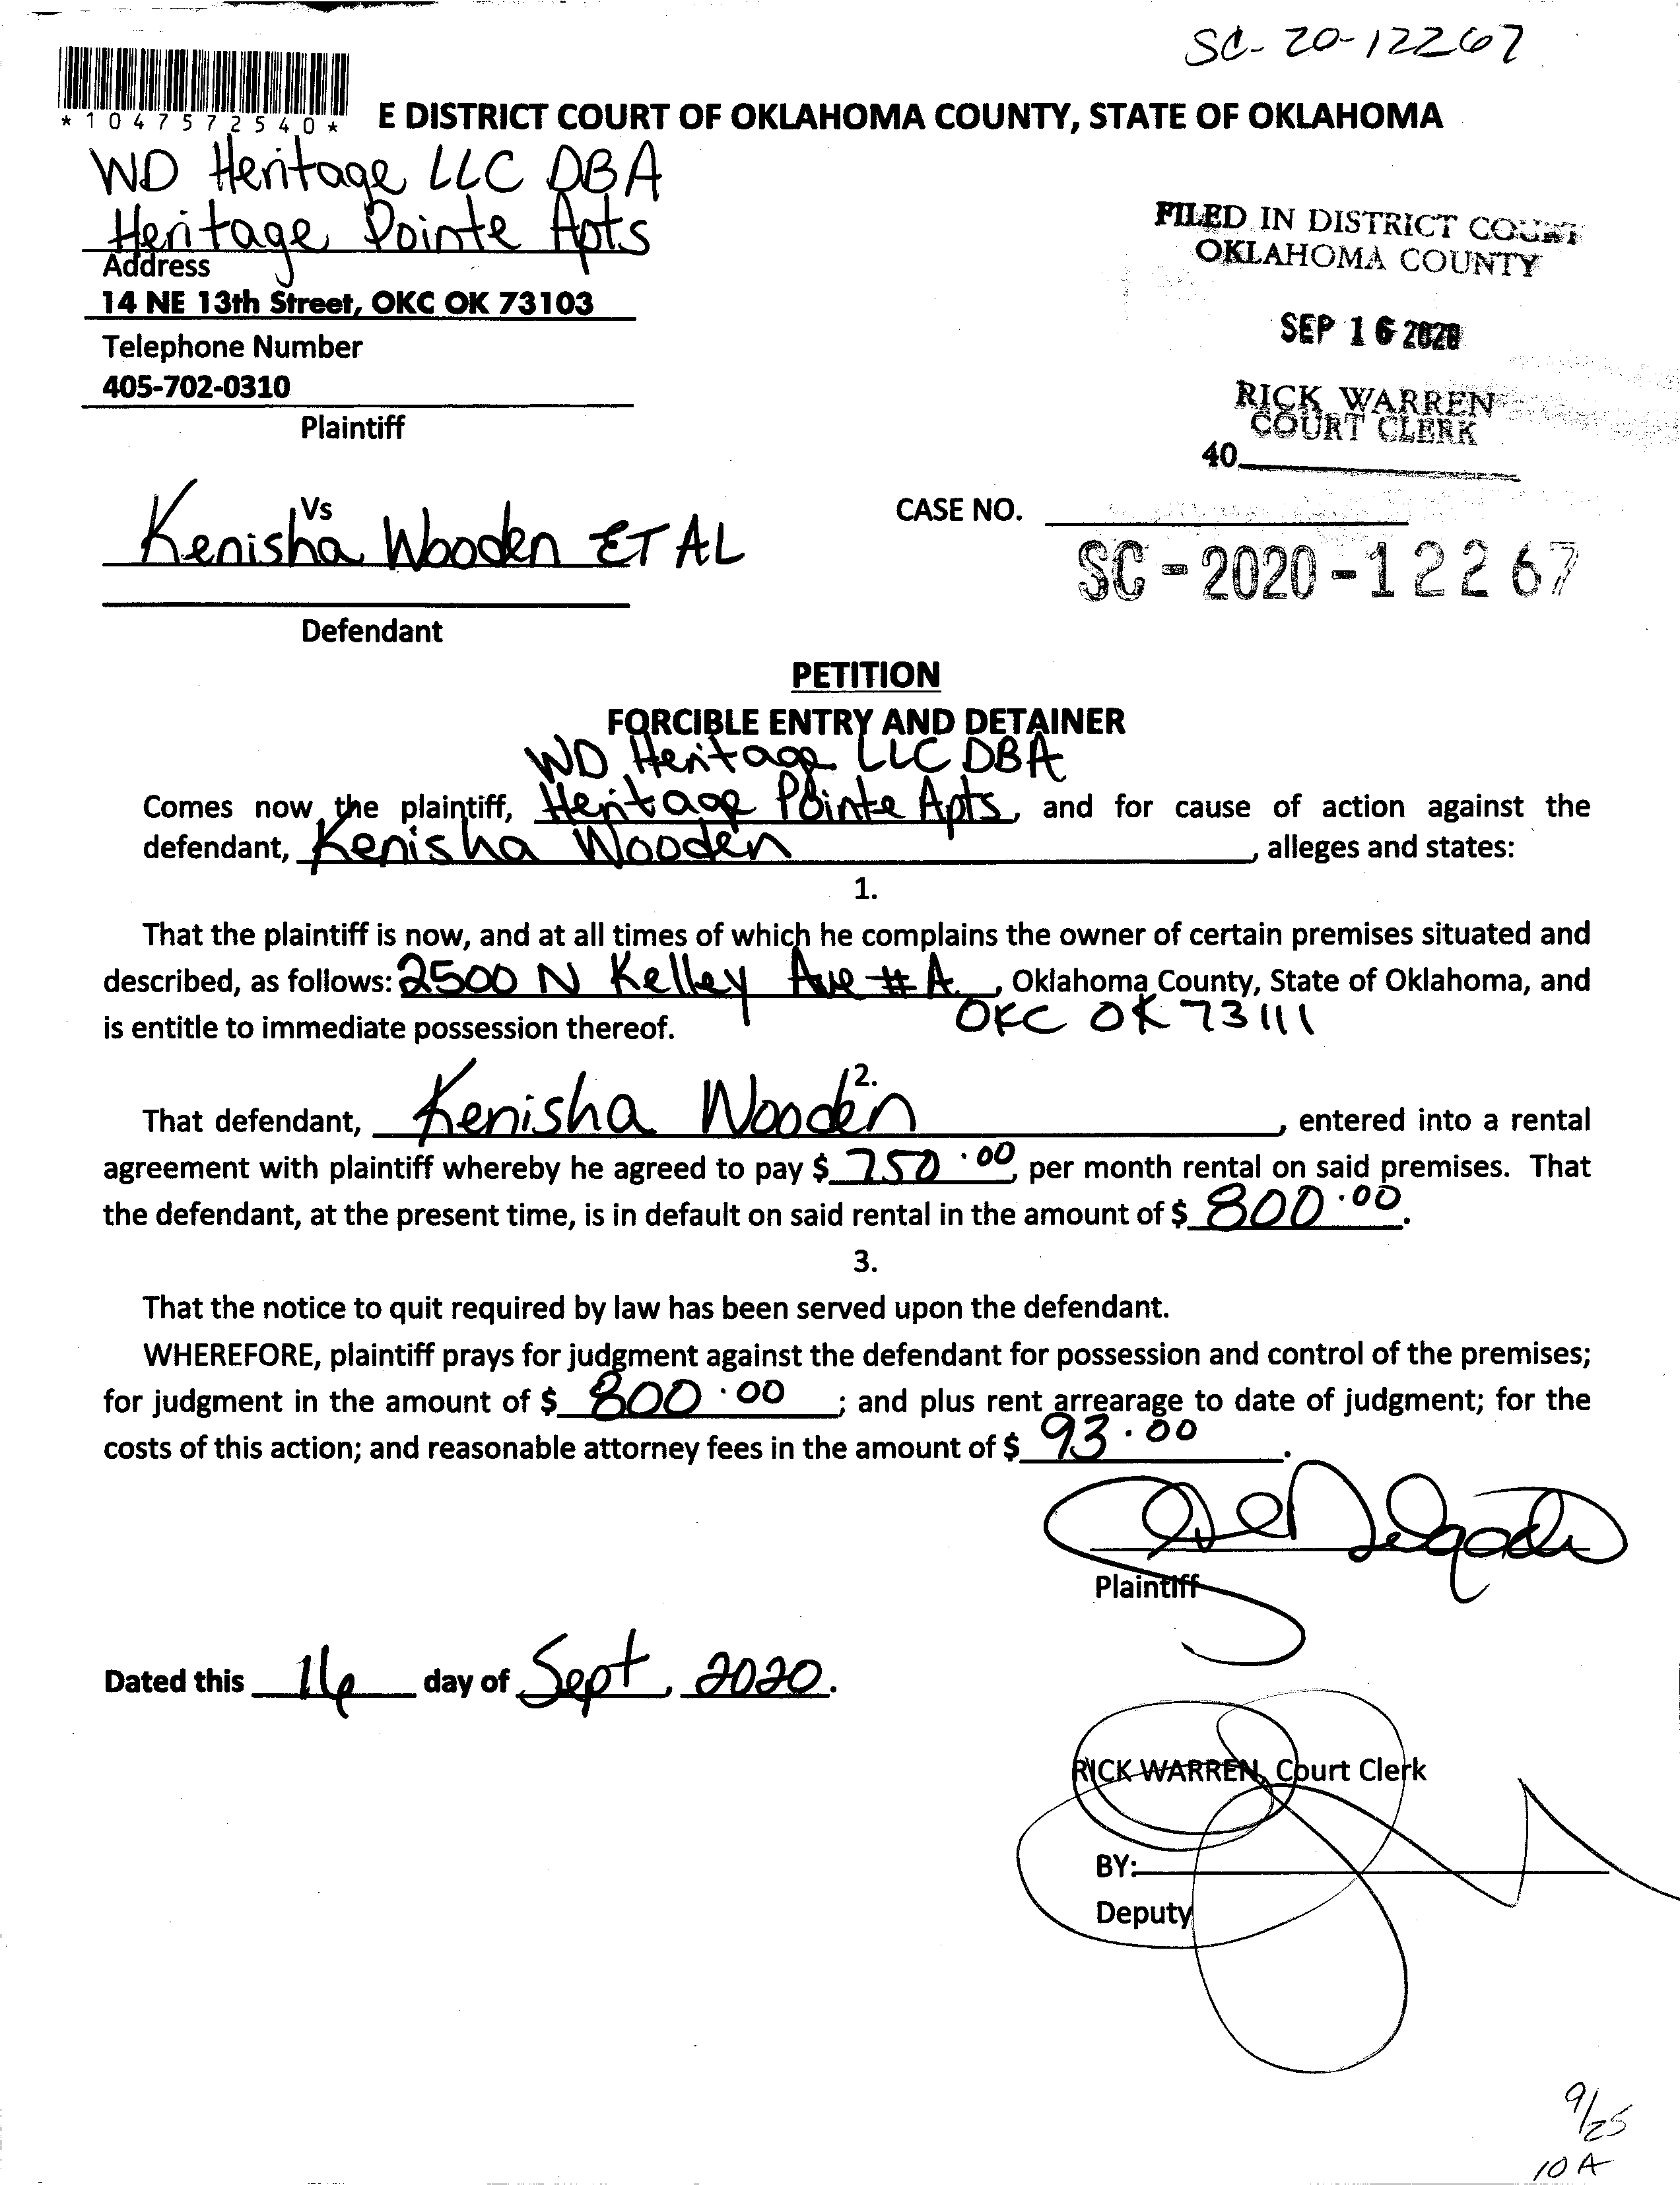 SC-20-12267
*1047572540*
E DISTRICT COURT OF OKLAHOMA COUNTY, STATE OF OKLAHOMA
WD Heritage LLC DBA
Heritage Pointe Apts
Address
14 NE 13th Street, OKC OK 73103
Telephone Number
405-702-0310
Plaintiff
FILED IN DISTRICT COURT
OKLAHOMA COUNTY
SEP 16 2020
RICK WARREN
COURT CLERK
40
Vs
Kenisha Wooden ET AL
Defendant
CASE NO.
SC-2020-12267
PETITION
FORCIBLE ENTRY AND DETAINER
WD Heritage LLC DBA
Comes now the plaintiff, Heritage Pointe Apts, and for cause of action against the
defendant, Kenisha Wooden, alleges and states:
1.
That the plaintiff is now, and at all times of which he complains the owner of certain premises situated and
described, as follows: 2500 N Kelley Ave # A, Oklahoma County, State of Oklahoma, and
is entitle to immediate possession thereof. OKC OK 73111
2.
That defendant, Kenisha Wooden, entered into a rental
agreement with plaintiff whereby he agreed to pay $ 750.00, per month rental on said premises. That
the defendant, at the present time, is in default on said rental in the amount of $ 800.00.
3.
That the notice to quit required by law has been served upon the defendant.
WHEREFORE, plaintiff prays for judgment against the defendant for possession and control of the premises;
for judgment in the amount of $ 800.00; and plus rent arrearage to date of judgment; for the
costs of this action; and reasonable attorney fees in the amount of $ 93.00.
Delgado
Plaintiff
Dated this 16 day of Sept, 2020.
RICK WARREN, Court Clerk
BY:
Deputy
9/25
10 A